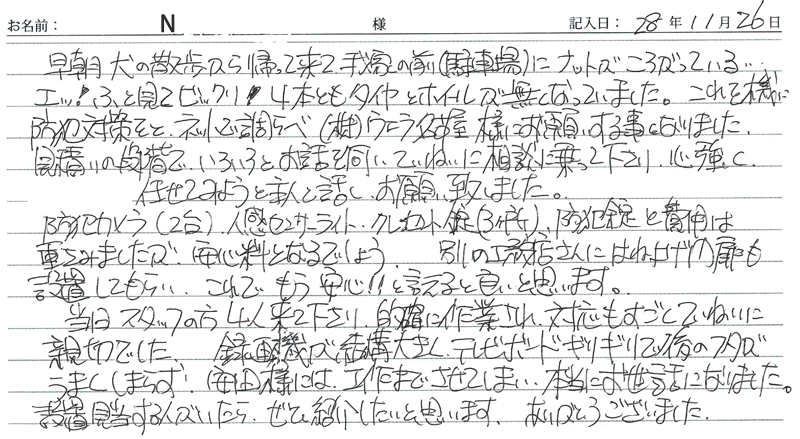 お名前： N 様 記入日： 28 年 11 月 26 日
早朝 犬の散歩から帰って来て我家の前(駐車場)にナットがころがっている…
エッ! ふと見てビックリ! 4本ともタイヤとホイールが無くなっていました。これを機に
防犯対策をと、ネットで調らべ (株) 名古屋 様にお願いする事となりました。
見積りの段階で、いろいろとお話を伺い、ていねいに相談に乗って下さり、心強く、
任せてみようと主人と話し、お願い致しました。
防犯カメラ(2台)、人感センサーライト・クレセント錠(3ヶ所)、防犯錠と費用は
重みましたが、安心料となるでしょう 別の工務店さんにはね上げの扉も
設置してもらい、これで もう安心!! と言えると良いと思います。
当日 スタッフの方4人来て下さり 的確に作業され、対応もすごくていねいに
親切でした。 録画機が結構大きく、テレビボードギリギリで後のフタが
うまくしまらず、安田様には、工作までさせてしまい、本当にお世話になりました。
設置見当する人がいたら、ぜひ紹介したいと思います。ありがとうございました。